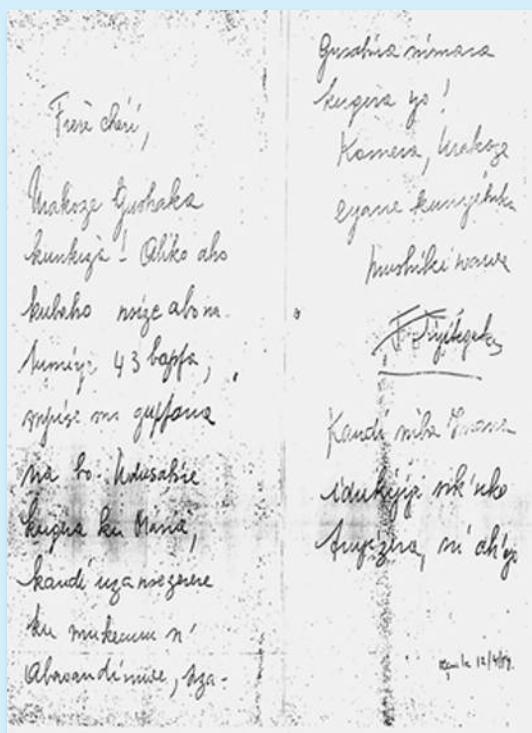 Frère chéri,
Urakoze Gushaka
kunkiza! Aliko aho
kubaho nsize abo na-
humuye 43 bapfa,
mpisemo gupfana
na bo. Udusabire
kugera ku Mana,
kandi uzansezerere
ku mukecuru n'
Abavandimwe, nza-
Gusabira nimara
kugera yo!
Komera, Urakoze
cyane kunyibuka
Mushiki wawe
F. Niyitegeka
Kandi niba Imana
idukijije nk'uko
twayizera, ni ah'ejo
12/4/94.